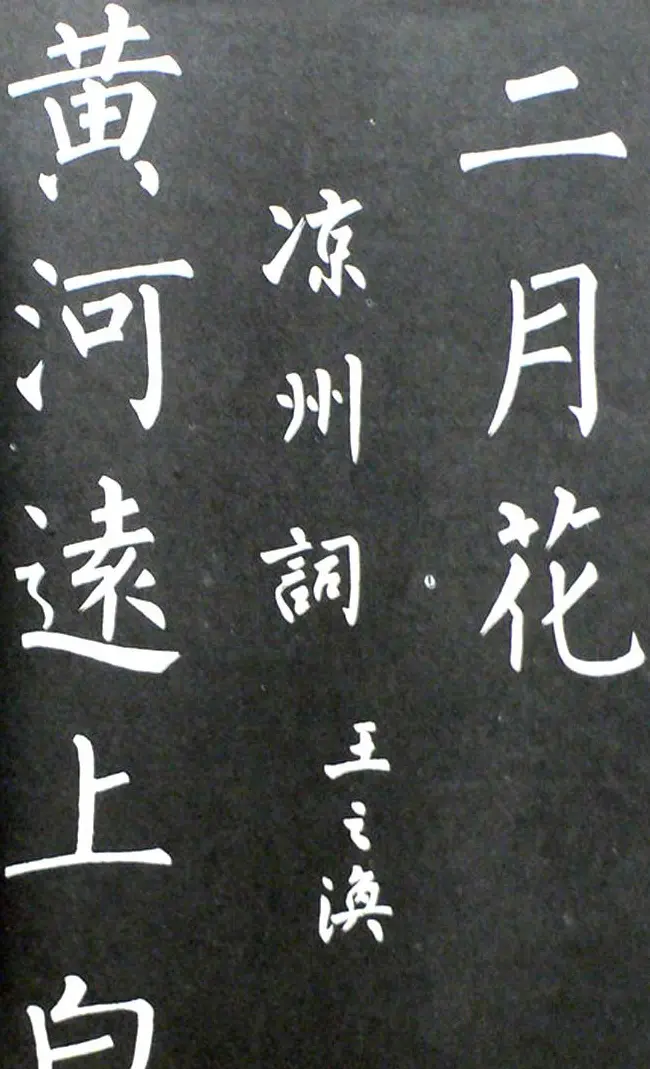 二月花
凉州詞
王之渙
黄河遠上白